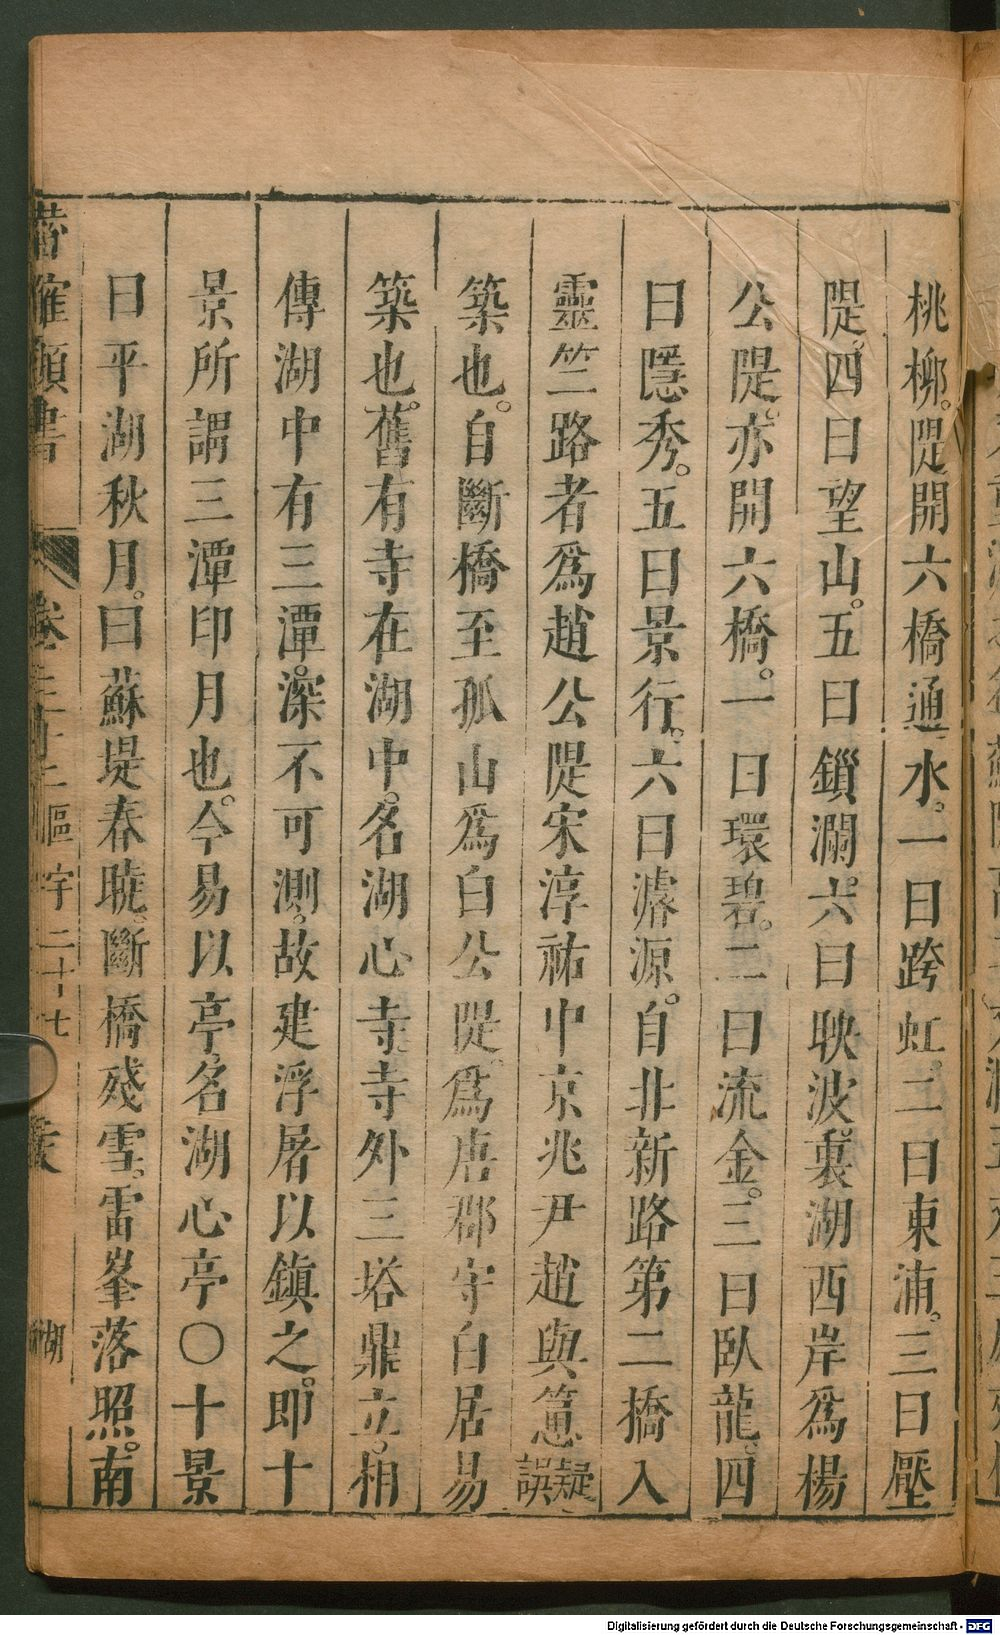 桃柳。隄。開六橋通水。一曰跨虹。二曰東浦。三曰壓
隄。四曰望山。五曰鎖瀾。六曰映波。裏湖西岸爲楊
公隄。亦開六橋。一曰環碧。二曰流金。三曰臥龍。四
曰隱秀。五曰景行。六曰濬源。自北新路第二橋入
靈竺路者爲趙公隄宋淳祐中京兆尹趙與𥲅疑誤
築也。自斷橋至孤山爲白公隄。爲唐郡守白居易
築也。舊有寺在湖中。名湖心寺。寺外三塔鼎立。相
傳湖中有三潭。深不可測。故建浮屠以鎮之。即十
景所謂三潭印月也。今易以亭。名湖心亭〇十景
曰平湖秋月。曰蘇堤春曉。斷橋殘雪。雷峯落照。南
類書 卷 區宇二十七 湖
Digitalisierung gefördert durch die Deutsche Forschungsgemeinschaft - DFG